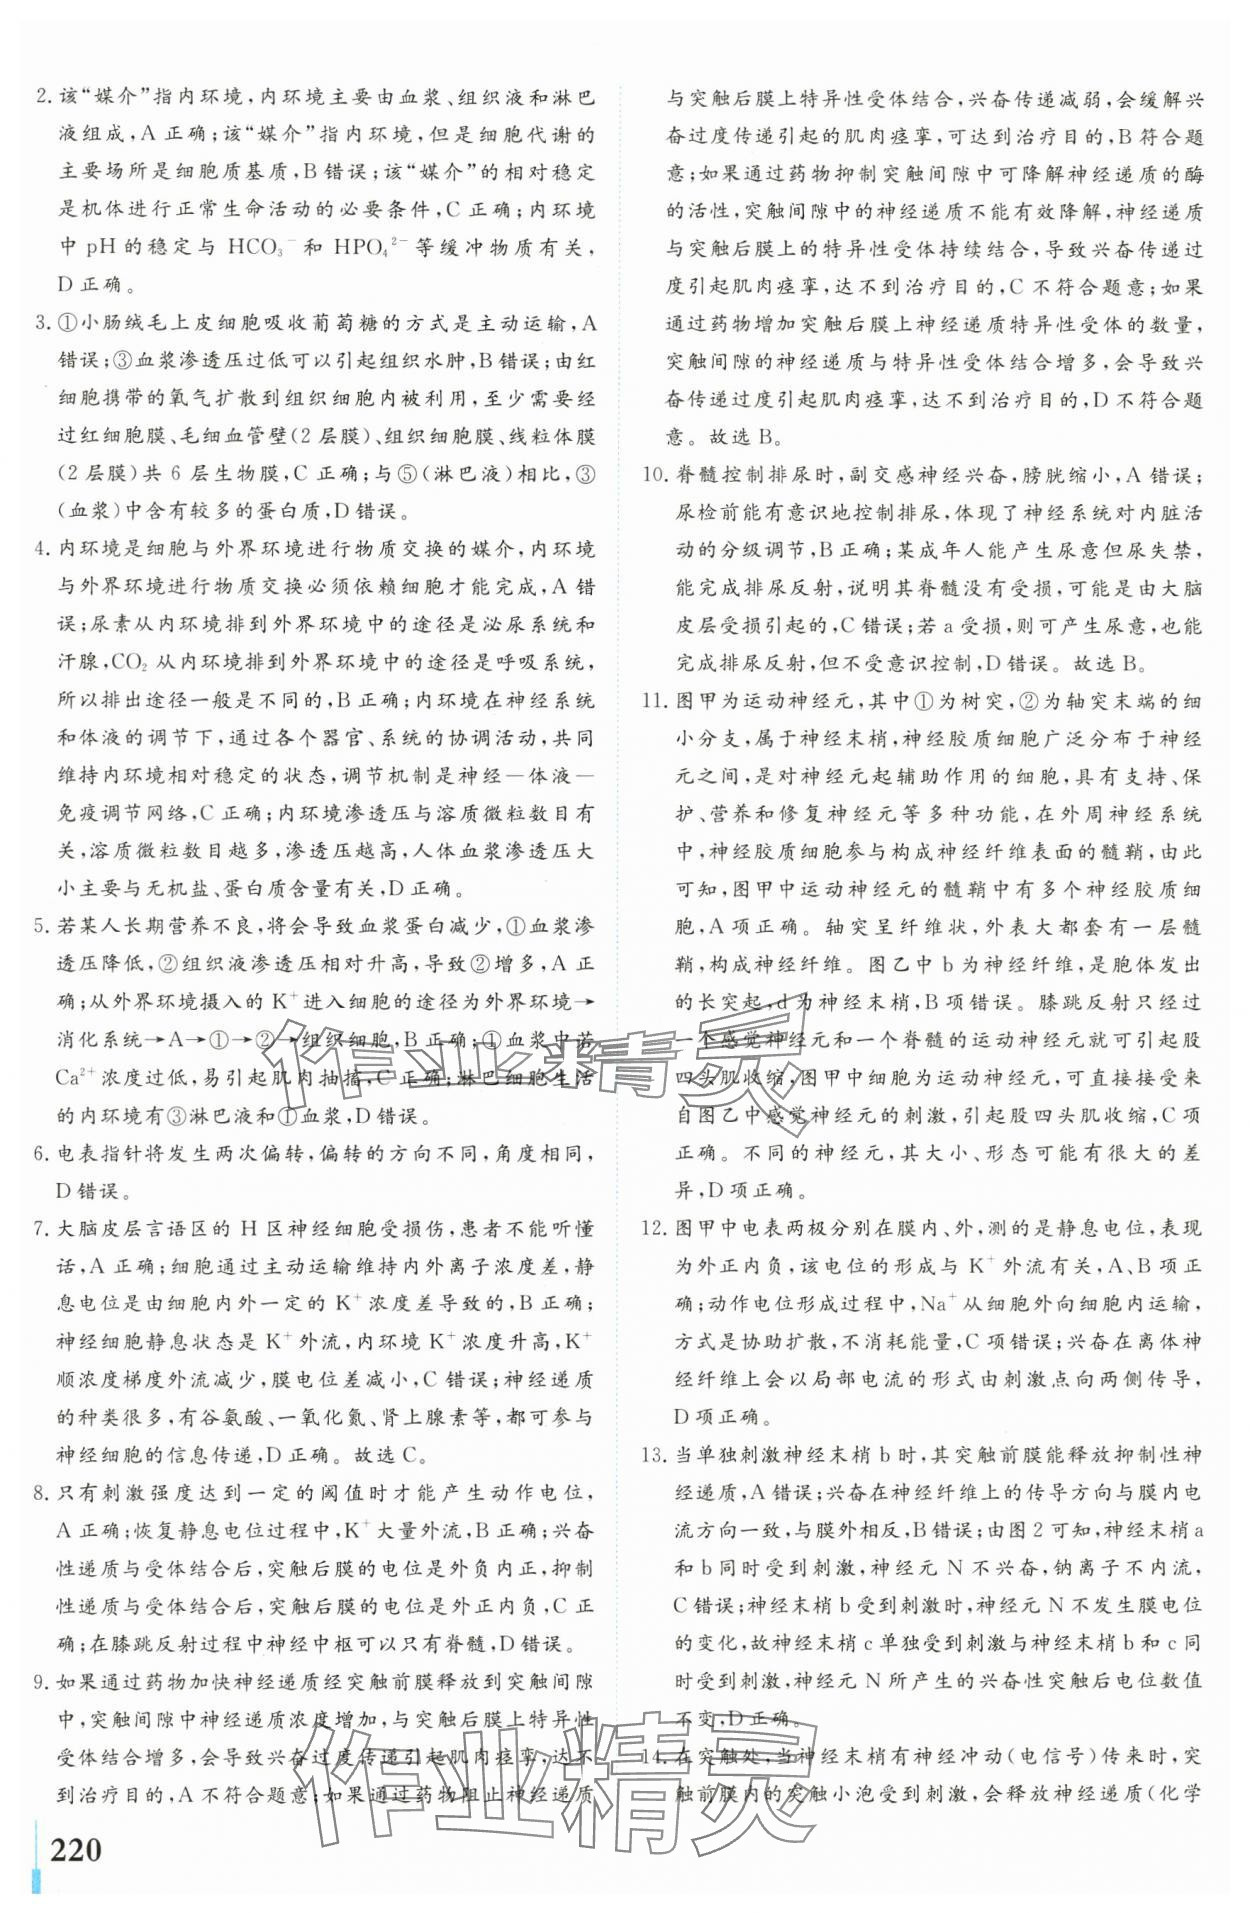 2. 该“媒介”指内环境,内环境主要由血浆、组织液和淋巴
液组成,A 正确;该“媒介”指内环境,但是细胞代谢的
主要场所是细胞质基质,B 错误;该“媒介”的相对稳定
是机体进行正常生命活动的必要条件,C 正确;内环境
中 pH 的稳定与 HCO₃⁻ 和 HPO₄²⁻ 等缓冲物质有关,
D 正确。
3. ①小肠绒毛上皮细胞吸收葡萄糖的方式是主动运输,A
错误;③血浆渗透压过低可以引起组织水肿,B 错误;由红
细胞携带的氧气扩散到组织细胞内被利用,至少需要经
过红细胞膜、毛细血管壁(2 层膜)、组织细胞膜、线粒体膜
(2 层膜)共 6 层生物膜,C 正确;与⑤(淋巴液)相比,③
(血浆)中含有较多的蛋白质,D 错误。
4. 内环境是细胞与外界环境进行物质交换的媒介,内环境
与外界环境进行物质交换必须依赖细胞才能完成,A 错
误;尿素从内环境排到外界环境中的途径是泌尿系统和
汗腺,CO₂ 从内环境排到外界环境中的途径是呼吸系统,
所以排出途径一般是不同的,B 正确;内环境在神经系统
和体液的调节下,通过各个器官、系统的协调活动,共同
维持内环境相对稳定的状态,调节机制是神经—体液—
免疫调节网络,C 正确;内环境渗透压与溶质微粒数目有
关,溶质微粒数目越多,渗透压越高,人体血浆渗透压大
小主要与无机盐、蛋白质含量有关,D 正确。
5. 若某人长期营养不良,将会导致血浆蛋白减少,①血浆渗
透压降低,②组织液渗透压相对升高,导致②增多,A 正
确;从外界环境摄入的 K⁺ 进入细胞的途径为外界环境→
消化系统→A→①→②→组织细胞,B 正确;①血浆中若
Ca²⁺ 浓度过低,易引起肌肉抽搐,C 正确;淋巴细胞生活
的内环境有③淋巴液和①血浆,D 错误。
6. 电表指针将发生两次偏转,偏转的方向不同,角度相同,
D 错误。
7. 大脑皮层言语区的 H 区神经细胞受损伤,患者不能听懂
话,A 正确;细胞通过主动运输维持内外离子浓度差,静
息电位是由细胞内外一定的 K⁺ 浓度差导致的,B 正确;
神经细胞静息状态是 K⁺ 外流,内环境 K⁺ 浓度升高,K⁺
顺浓度梯度外流减少,膜电位差减小,C 错误;神经递质
的种类很多,有谷氨酸、一氧化氮、肾上腺素等,都可参与
神经细胞的信息传递,D 正确。故选 C。
8. 只有刺激强度达到一定的阈值时才能产生动作电位,
A 正确;恢复静息电位过程中,K⁺ 大量外流,B 正确;兴奋
性递质与受体结合后,突触后膜的电位是外负内正,抑制
性递质与受体结合后,突触后膜的电位是外正内负,C 正
确;在膝跳反射过程中神经中枢可以只有脊髓,D 错误。
9. 如果通过药物加快神经递质经突触前膜释放到突触间隙
中,突触间隙中神经递质浓度增加,与突触后膜上特异性
受体结合增多,会导致兴奋过度传递引起肌肉痉挛,达不
到治疗目的,A 不符合题意;如果通过药物阻止神经递质
与突触后膜上特异性受体结合,兴奋传递减弱,会缓解兴
奋过度传递引起的肌肉痉挛,可达到治疗目的,B 符合题
意;如果通过药物抑制突触间隙中可降解神经递质的酶
的活性,突触间隙中的神经递质不能有效降解,神经递质
与突触后膜上的特异性受体持续结合,导致兴奋传递过
度引起肌肉痉挛,达不到治疗目的,C 不符合题意;如果
通过药物增加突触后膜上神经递质特异性受体的数量,
突触间隙的神经递质与特异性受体结合增多,会导致兴
奋传递过度引起肌肉痉挛,达不到治疗目的,D 不符合题
意。故选 B。
10. 脊髓控制排尿时,副交感神经兴奋,膀胱缩小,A 错误;
尿检前能有意识地控制排尿,体现了神经系统对内脏活
动的分级调节,B 正确;某成年人能产生尿意但尿失禁,
能完成排尿反射,说明其脊髓没有受损,可能是由大脑
皮层受损引起的,C 错误;若 a 受损,则可产生尿意,也能
完成排尿反射,但不受意识控制,D 错误。故选 B。
11. 图甲为运动神经元,其中①为树突,②为轴突末端的细
小分支,属于神经末梢,神经胶质细胞广泛分布于神经
元之间,是对神经元起辅助作用的细胞,具有支持、保
护、营养和修复神经元等多种功能,在外周神经系统
中,神经胶质细胞参与构成神经纤维表面的髓鞘,由此
可知,图甲中运动神经元的髓鞘中有多个神经胶质细
胞,A 项正确。轴突呈纤维状,外表大都套有一层髓
鞘,构成神经纤维。图乙中 b 为神经纤维,是胞体发出
的长突起,d 为神经末梢,B 项错误。膝跳反射只经过
一个感觉神经元和一个脊髓的运动神经元就可引起股
四头肌收缩,图甲中细胞为运动神经元,可直接接受来
自图乙中感觉神经元的刺激,引起股四头肌收缩,C 项
正确。不同的神经元,其大小、形态可能有很大的差
异,D 项正确。
12. 图甲中电表两极分别在膜内、外,测的是静息电位,表现
为外正内负,该电位的形成与 K⁺ 外流有关,A、B 项正
确;动作电位形成过程中,Na⁺ 从细胞外向细胞内运输,
方式是协助扩散,不消耗能量,C 项错误;兴奋在离体神
经纤维上会以局部电流的形式由刺激点向两侧传导,
D 项正确。
13. 当单独刺激神经末梢 b 时,其突触前膜能释放抑制性神
经递质,A 错误;兴奋在神经纤维上的传导方向与膜内电
流方向一致,与膜外相反,B 错误;由图 2 可知,神经末梢 a
和 b 同时受到刺激,神经元 N 不兴奋,钠离子不内流,
C 错误;神经末梢 b 受到刺激时,神经元 N 不发生膜电位
的变化,故神经末梢 c 单独受到刺激与神经末梢 b 和 c 同
时受到刺激,神经元 N 所产生的兴奋性突触后电位数值
不变,D 正确。
14. 在突触处,当神经末梢有神经冲动(电信号)传来时,突
触前膜内的突触小泡受到刺激,会释放神经递质(化学
作业精灵
作业精灵
220